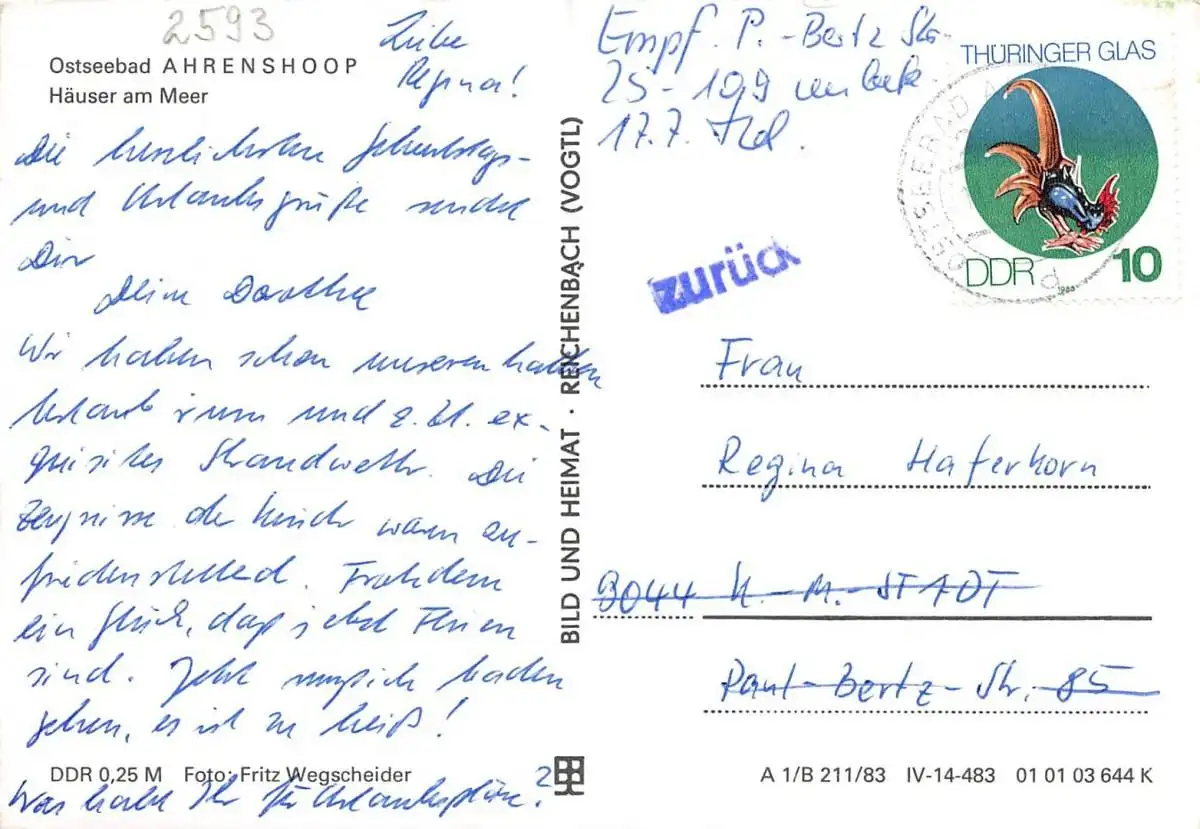 2593
Ostseebad AHRENSHOOP
Häuser am Meer
Liebe
Regina!
Die herzlichsten Geburtstags-
und Urlaubsgrüße sendet
Dir
Deine Dorothee
Wir haben schon unseren halben
Urlaub rum und z. Zt. ex-
quisites Strandwetter. Die
Zeugnisse der Kinder waren zu-
friedenstellend. Trotzdem
ein Glück, daß jetzt Ferien
sind. Jetzt muß ich baden
gehen, es ist zu heiß!
Was habt Ihr für Urlaubspläne?
DDR 0,25 M Foto: Fritz Wegscheider
BILD UND HEIMAT · REICHENBACH (VOGTL)
Empf. P.-Bertz Str.
25-109 unbek.
17.7.
zurück
THÜRINGER GLAS
DDR 10
1983
OSTSEEBAD
Frau
Regina Haferkorn
9044 K.-M.-STADT
Paul-Bertz-Str. 85
A 1/B 211/83 IV-14-483 01 01 03 644 K